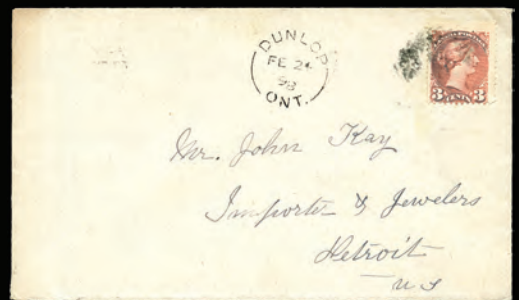 DUNLOP
FE 24
98
ONT.
3 3
Mr. John Kay
Importer & Jewelers
Detroit
U S